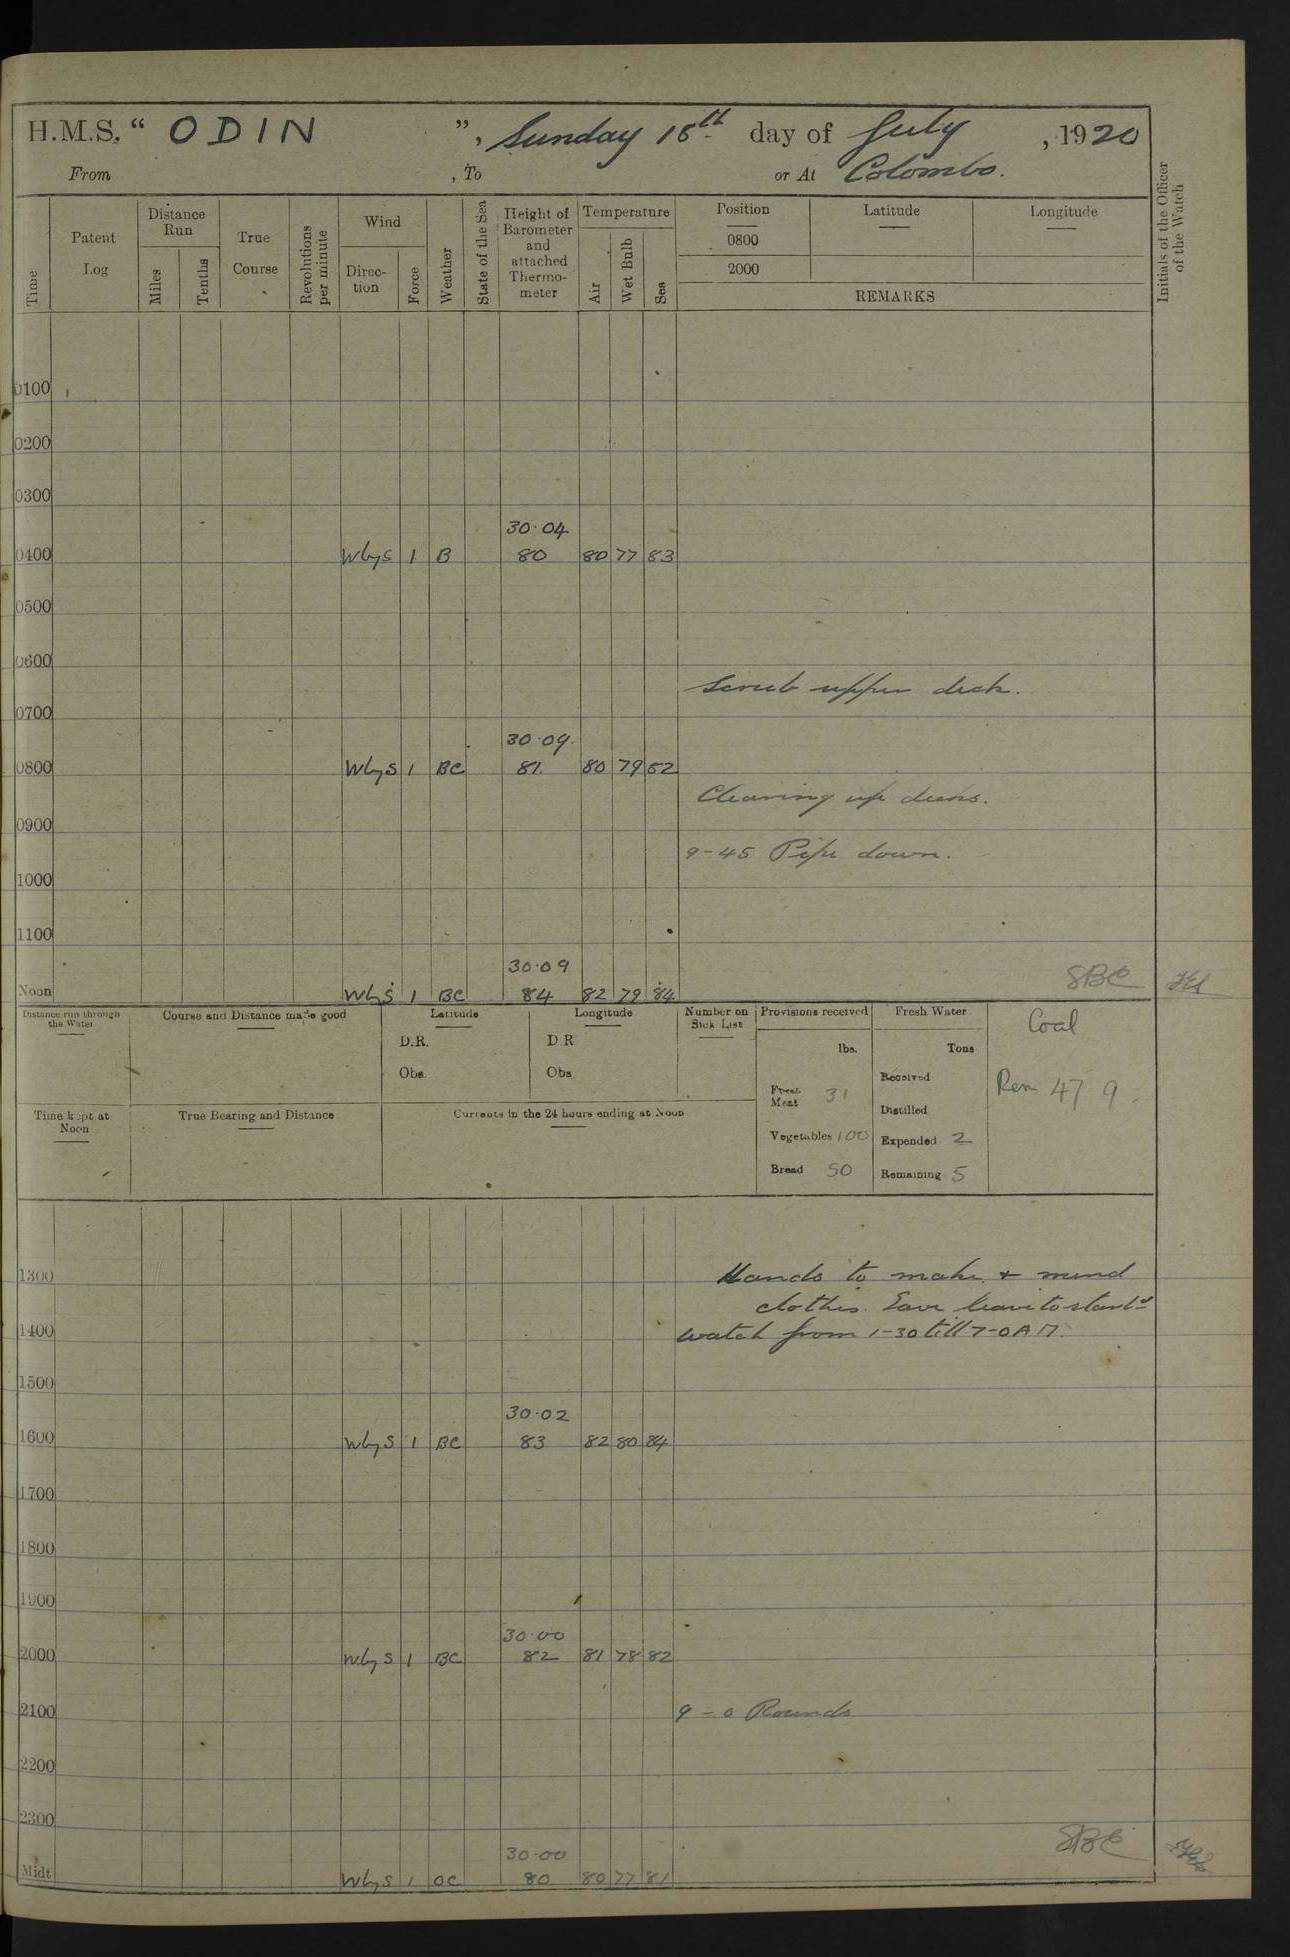 H.M.S. “ ODIN ”, Sunday 18th day of July, 1920
From , To or At Colombo.
Time
Patent Log
Distance Run
Miles
Tenths
True Course
Revolutions per minute
Wind
Direction
Force
Weather
State of the Sea
Height of Barometer and attached Thermometer
Temperature
Air
Wet Bulb
Sea
Position Latitude Longitude
0800
2000
REMARKS
Initials of the Officer of the Watch
0100
0200
0300
30.04
0400 WbyS 1 B 80 80 77 83
0500
0600
Scrub upper deck.
0700
30.09
0800 WbyS 1 BC 81 80 79 82
Clearing up decks.
0900
9-45 Pipe down.
1000
1100
30.09
Noon WbyS 1 BC 84 82 79 84
Distance run through the Water
Course and Distance made good
Latitude
D.R.
Obs.
Longitude
D R
Obs
Number on Sick List
Provisions received
lbs.
Fresh Meat 31
Vegetables 100
Bread 50
Fresh Water
Tons
Received
Distilled
Expended 2
Remaining 5
Coal
Rem 47 9
Time kept at Noon
True Bearing and Distance
Currents in the 24 hours ending at Noon
1300 Hands to make & mend
clothes. Gave leave to starbd
1400 watch from 1-30 till 7-0 AM.
1500
30.02
1600 WbyS 1 BC 83 82 80 84
1700
1800
1900
30.00
2000 WbyS 1 BC 82 81 78 82
2100 9-0 Rounds
2200
2300
30.00
Midt WbyS 1 OC 80 80 77 81